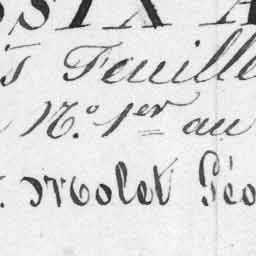 SSIX A
ts Feuille
N.° 1er au
. Molet Géo